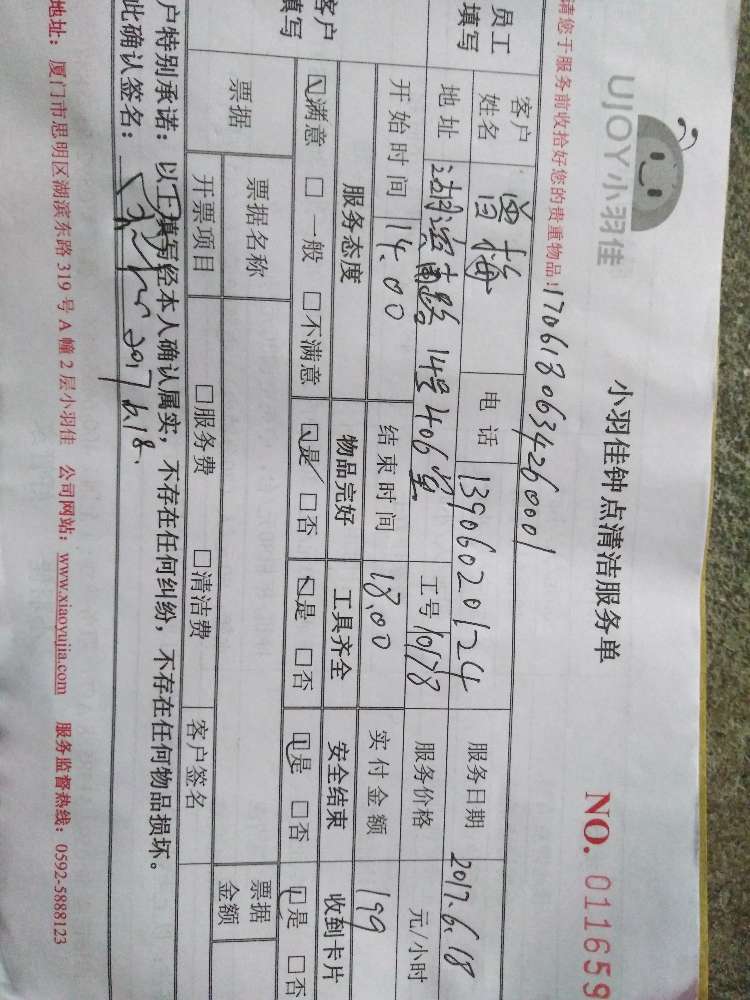 UJOY小羽佳
小羽佳钟点清洁服务单
NO. 011659
请您于服务前收拾好您的贵重物品!
1706180634260001
员工填写
客户姓名 曾梅 电话 13906020124 服务日期 2017.6.18
地址 14号406室 工号 10178 服务价格 元/小时
开始时间 14.00 结束时间 18.00 实付金额 199
客户填写
服务态度 物品完好 工具齐全 安全结束 收到卡片
□满意 □一般 □不满意 □是 □否 □是 □否 □是 □否 □是 □否
票据 票据名称 票据金额
开票项目 □服务费 □清洁费 客户签名
户特别承诺:以上填写经本人确认属实,不存在任何纠纷,不存在任何物品损坏。
此确认签名: 2017.6.18.
地址:厦门市思明区湖滨东路319号A幢2层小羽佳 公司网站:www.xiaoyujia.com 服务监督热线:0592-5888123